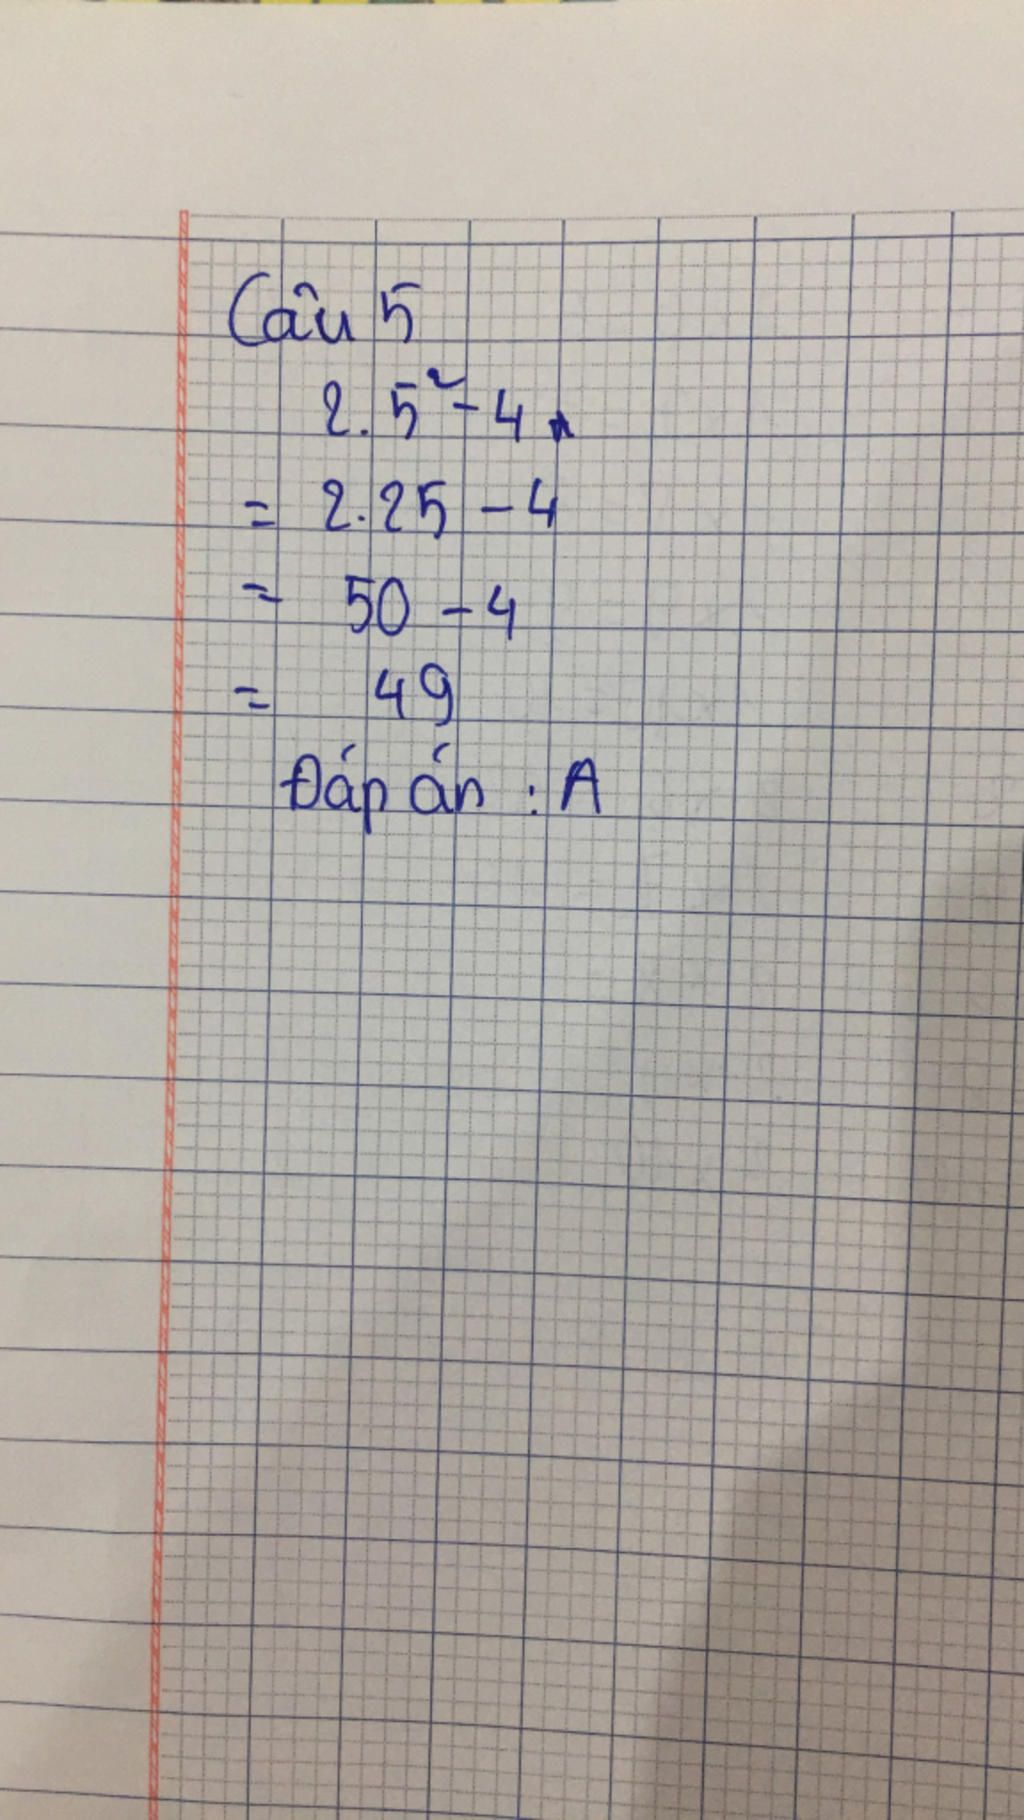 Câu 5
2. 5² - 4
= 2.25 - 4
= 50 - 4
= 49
Đáp án : A